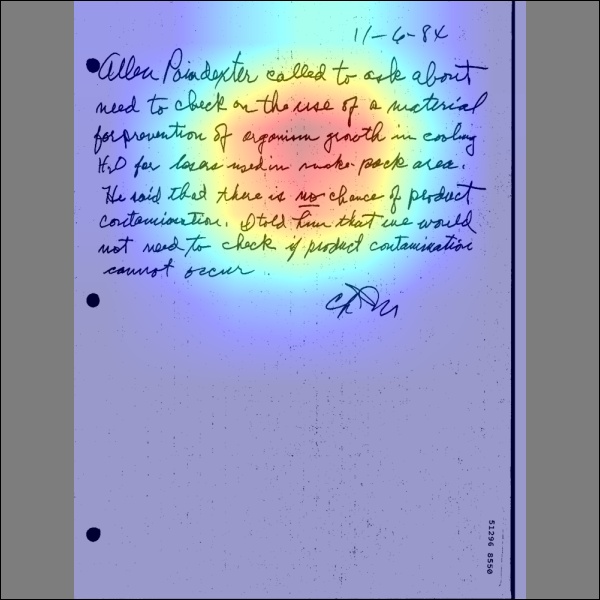 11-6-84
Allen Poindexter called to ask about
need to check on the use of a material
for prevention of organism growth in cooling
H2O for lasers used in make-pack area.
He said that there is no chance of product
contamination. I told him that we would
not need to check if product contamination
cannot occur
51296 8550